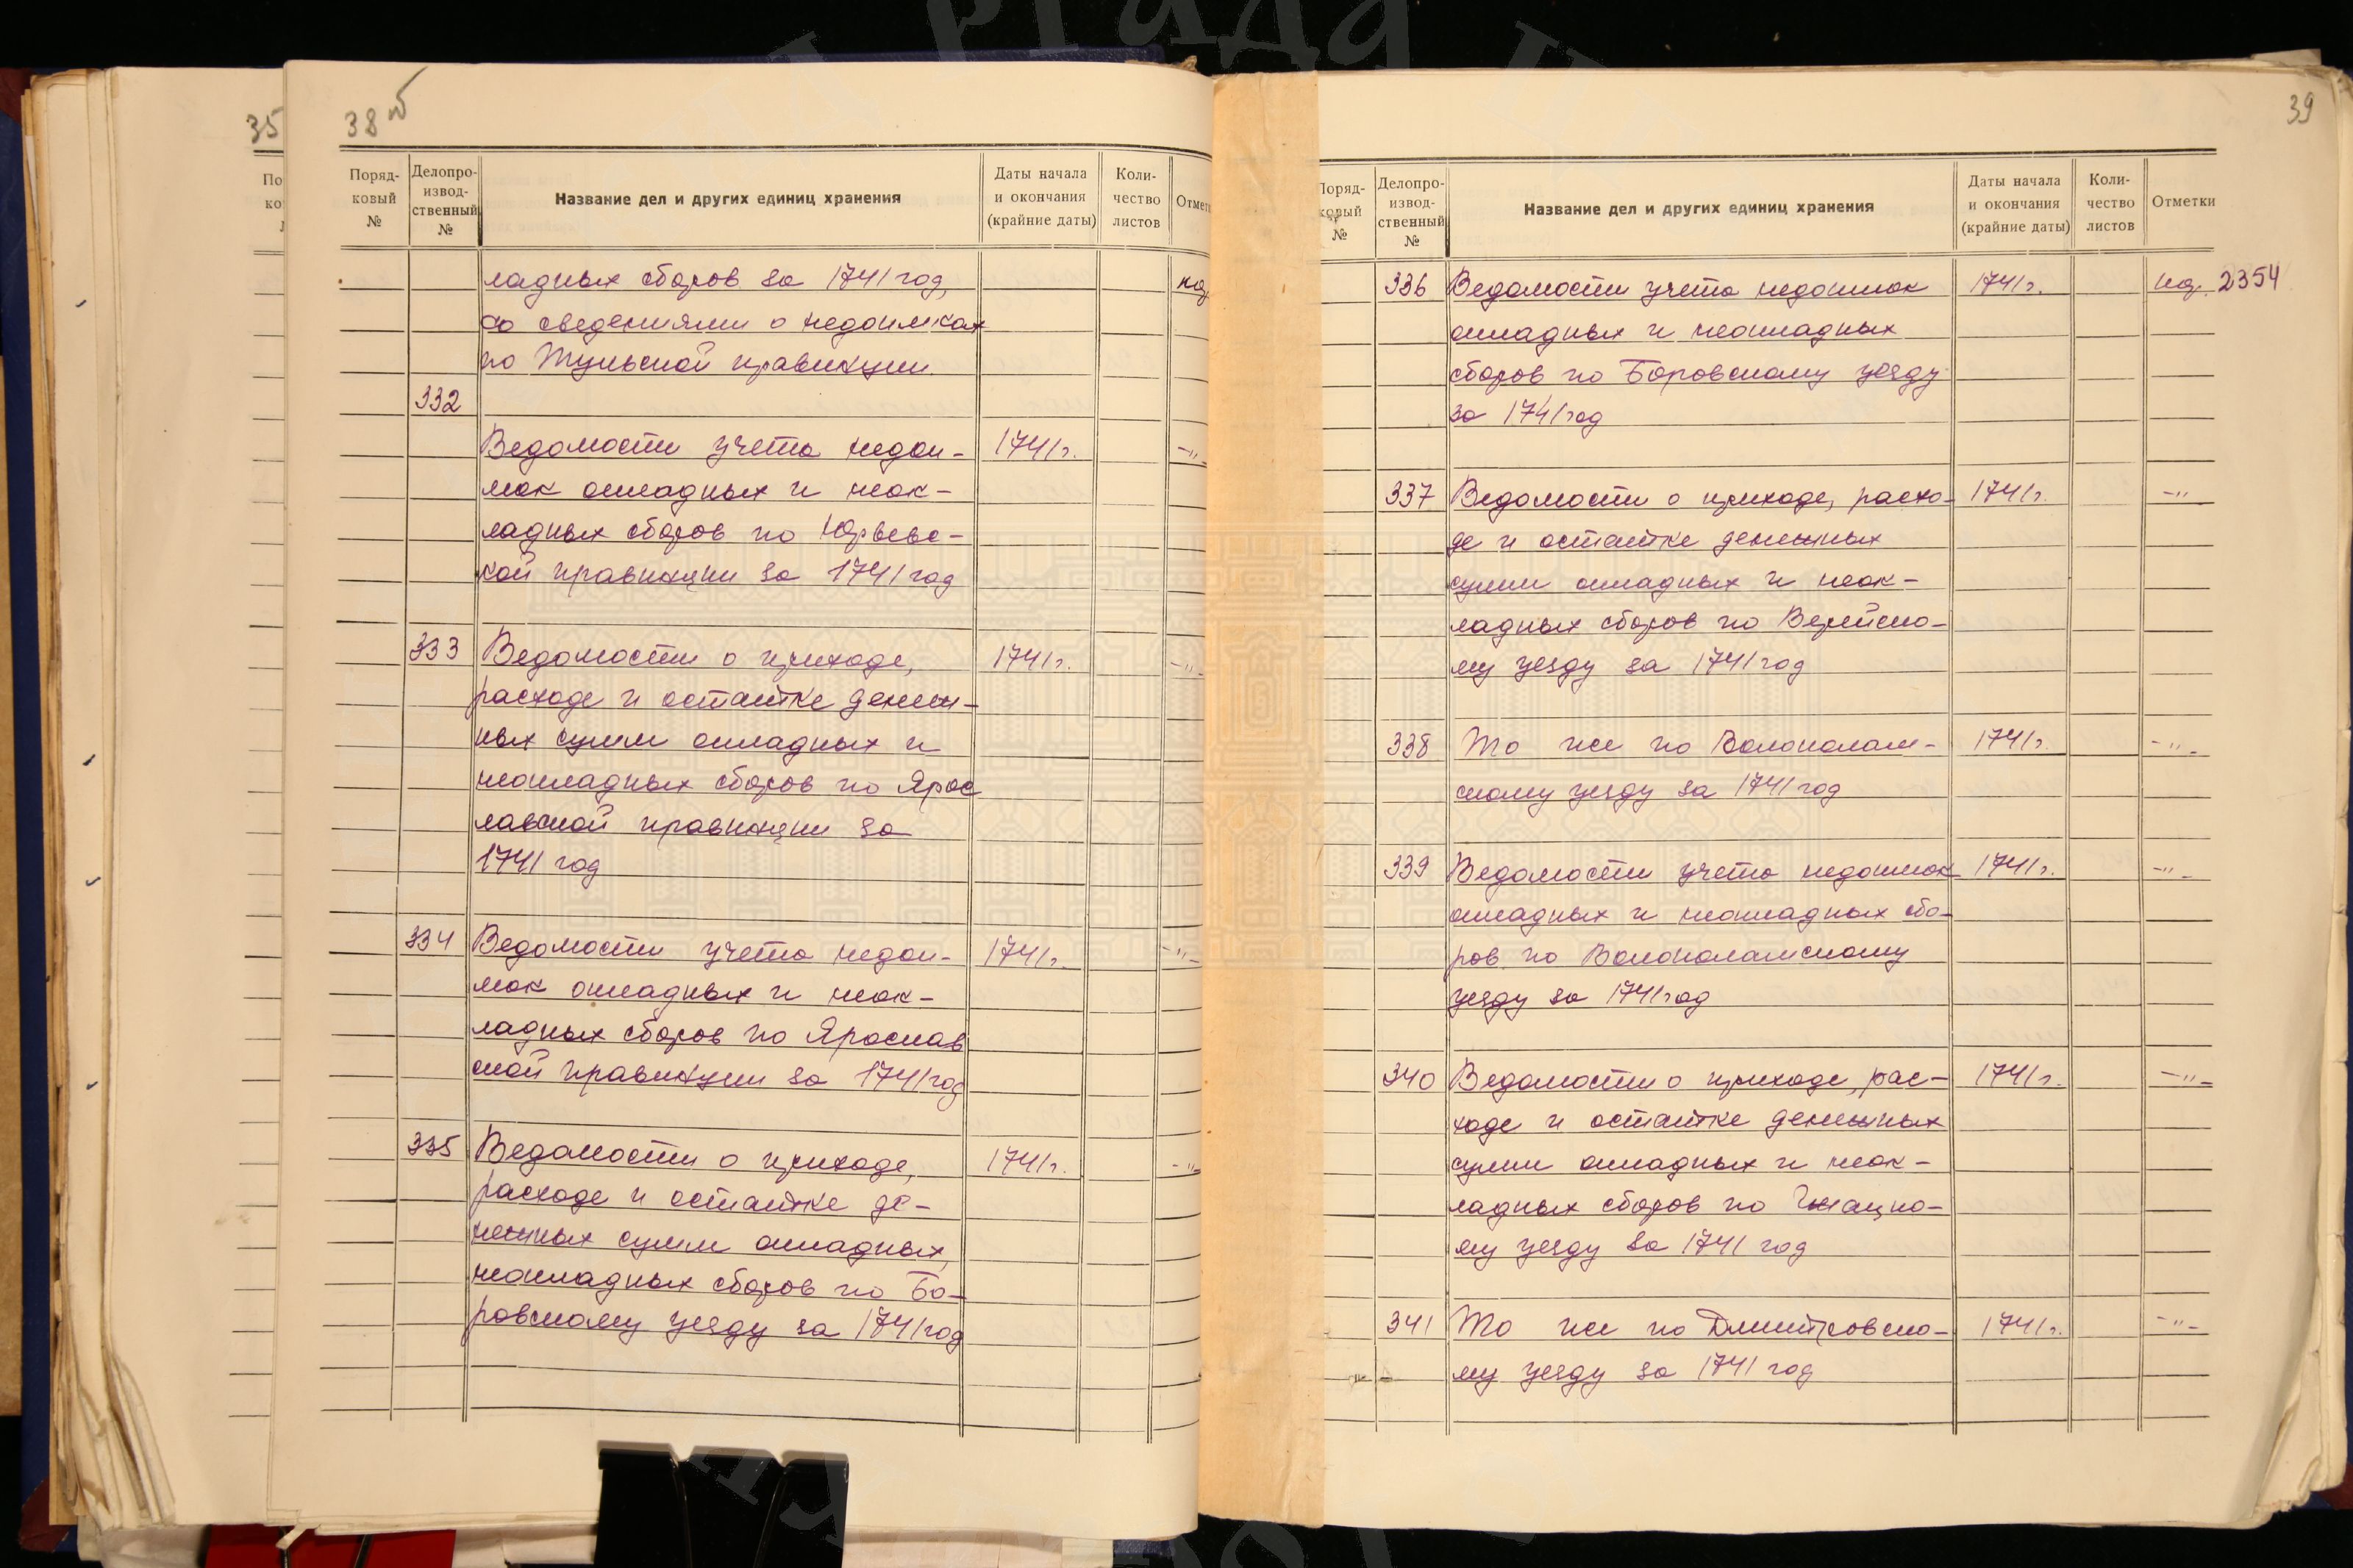 35
38 об
Поряд-
ковый
№
Делопро-
извод-
ственный
№
Название дел и других единиц хранения
Даты начала
и окончания
(крайние даты)
Коли-
чество
листов
ладных сборов за 1741 год,
со сведениями о недоимках
по Тульской провинции.
332
Ведомости учета недои- 1741 г. -"-
мок окладных и неок-
ладных сборов по Юрьевс-
кой провинции за 1741 год
333 Ведомости о приходе, 1741 г. -"-
расходе и остатке денеж-
ных сумм окладных и
неокладных сборов по Ярос
лавской провинции за
1741 год
334 Ведомости учета недои- 1741 г. -"-
мок окладных и неок-
ладных сборов по Ярослав
ской провинции за 1741 год
335 Ведомости о приходе, 1741 г. -"-
расходе и остатке де-
нежных сумм окладных,
неокладных сборов по Бо-
ровскому уезду за 1741 год
39
Поряд-
ковый
№
Делопро-
извод-
ственный
№
Название дел и других единиц хранения
Даты начала
и окончания
(крайние даты)
Коли-
чество
листов
Отметки
336 Ведомости учета недоимок 1741 г. 2354
окладных и неокладных
сборов по Боровскому уезду
за 1741 год
337 Ведомости о приходе, расхо- 1741 г. -"-
де и остатке денежных
сумм окладных и неок-
ладных сборов по Верейско-
му уезду за 1741 год
338 То же по Волоколам- 1741 г. -"-
скому уезду за 1741 год
339 Ведомости учета недоимок 1741 г. -"-
окладных и неокладных сбо-
ров по Волоколамскому
уезду за 1741 год
340 Ведомости о приходе, рас- 1741 г. -"-
ходе и остатке денежных
сумм окладных и неок-
ладных сборов по
му уезду за 1741 год
341 То же по Дмитровско- 1741 г. -"-
му уезду за 1741 год